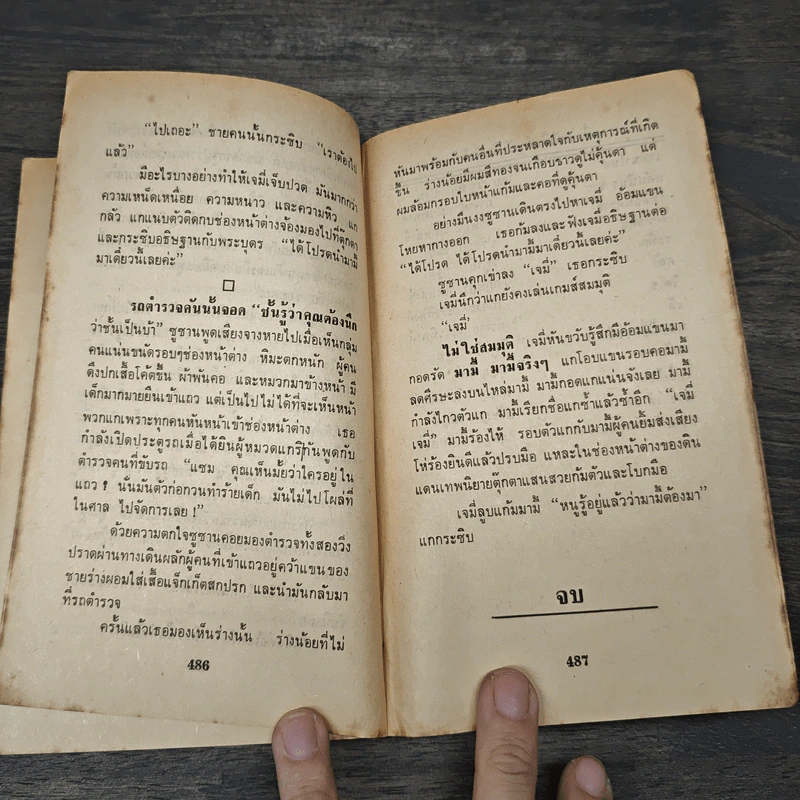 “ไปเถอะ” ชายคนนั้นกระซิบ “เราต้องไป
แล้ว”
มีอะไรบางอย่างทำให้เจมี่เจ็บปวด มันมากกว่า
ความเหน็ดเหนื่อย ความหนาว และความหิว แก
กลัว แกแนบตัวติดกับช่องหน้าต่างจ้องมองไปที่ตุ๊กตา
และกระซิบอธิษฐานกับพระบุตร “ได้โปรดนำมามี้
มาเดี๋ยวนี้เลยค่ะ”
รถตำรวจคันนั้นจอด “ชั้นรู้ว่าคุณต้องนึก
ว่าชั้นเป็นบ้า” ซูซานพูดเสียงจางหายไปเมื่อเห็นกลุ่ม
คนแน่นขนัดรอบๆช่องหน้าต่าง หิมะตกหนัก ผู้คน
ดึงปกเสื้อโค้ตขึ้น ผ้าพันคอ และหมวกมาข้างหน้า มี
เด็กมากมายยืนเข้าแถว แต่เป็นไปไม่ได้ที่จะเห็นหน้า
พวกแกเพราะทุกคนหันหน้าเข้าช่องหน้าต่าง เธอ
กำลังเปิดประตูรถเมื่อได้ยินผู้หมวดแกริกันพูดกับ
ตำรวจคนที่ขับรถ “แซม คุณเห็นมั้ยว่าใครอยู่ใน
แถว ! นั่นมันตัวก่อกวนทำร้ายเด็ก มันไม่ไปโผล่ที่
ในศาล ไปจัดการเลย !”
ด้วยความตกใจซูซานคอยมองตำรวจทั้งสองวิ่ง
ปราดผ่านทางเดินผลักผู้คนที่เข้าแถวอยู่คว้าแขนของ
ชายร่างผอมใส่เสื้อแจ็กเก็ตสกปรก และนำมันกลับมา
ที่รถตำรวจ
ครั้นแล้วเธอมองเห็นร่างนั้น ร่างน้อยที่ไม่
486
หันมาพร้อมกับคนอื่นที่ประหลาดใจกับเหตุการณ์ที่เกิด
ขึ้น ร่างน้อยมีผมสีทองจนเกือบขาวดูไม่คุ้นตา แต่
ผมล้อมกรอบใบหน้าแก้มและคอที่ดูคุ้นตา
อย่างมึนงงซูซานเดินตรงไปหาเจมี่ อ้อมแขน
โหยหากางออก เธอก้มลงและฟังเจมี่อธิษฐานต่อ
“ได้โปรด ได้โปรดนำมามี้มาเดี๋ยวนี้เลยค่ะ”
ซูซานคุกเข่าลง “เจมี่” เธอกระซิบ
เจมี่นึกว่าแกยังคงเล่นเกมส์สมมุติ
“เจมี่”
ไม่ใช่สมมุติ เจมี่หันขวับรู้สึกมีอ้อมแขนมา
กอดรัด มามี้ มามี้จริงๆ แกโอบแขนรอบคอมามี้
ลดศีรษะลงบนไหล่มามี้ มามี้กอดแกแน่นจังเลย มามี้
กำลังไกวตัวแก มามี้เรียกชื่อแกซ้ำแล้วซ้ำอีก “เจมี่
เจมี่” มามี้ร้องไห้ รอบตัวแกกับมามี้ผู้คนยิ้มส่งเสียง
โห่ร้องยินดีแล้วปรบมือ แหละในช่องหน้าต่างของดิน
แดนเทพนิยายตุ๊กตาแสนสวยก้มตัวและโบกมือ
เจมี่ลูบแก้มมามี้ “หนูรู้อยู่แล้วว่ามามี้ต้องมา”
แกกระซิบ
จบ
487